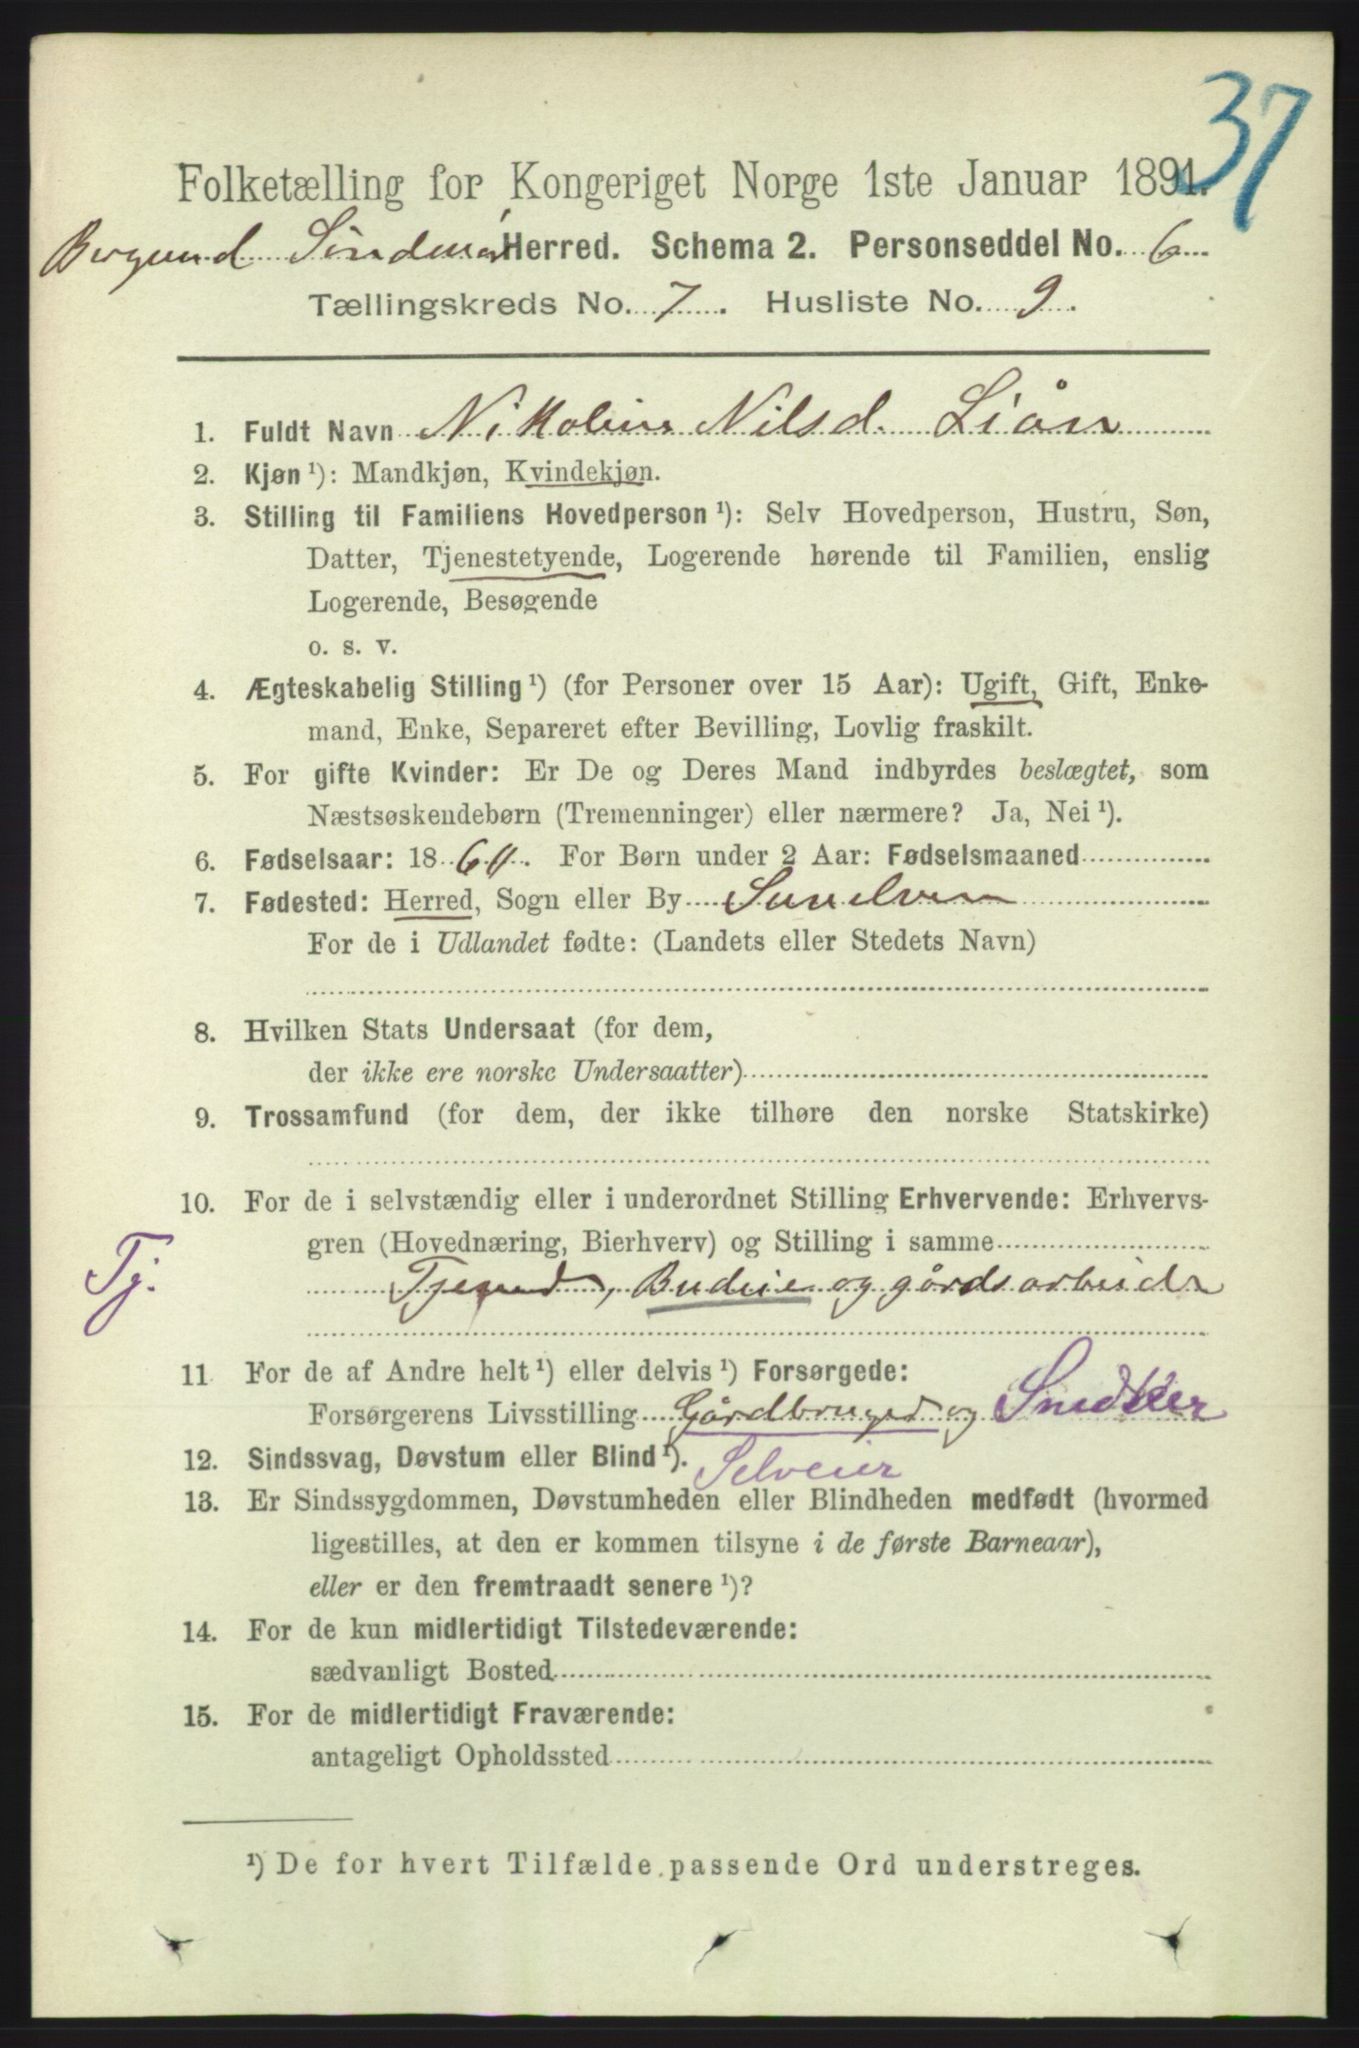 37
Folketælling for Kongeriget Norge 1ste Januar 1891.
Borgund Söndmör Herred. Schema 2. Personseddel No. 6
Tællingskreds No. 7. Husliste No. 9.
1. Fuldt Navn Nikoline Nilsd. Liån
2. Kjøn ¹): Mandkjøn, Kvindekjøn.
3. Stilling til Familiens Hovedperson ¹): Selv Hovedperson, Hustru, Søn,
Datter, Tjenestetyende, Logerende hørende til Familien, enslig
Logerende, Besøgende
o. s. v.
4. Ægteskabelig Stilling ¹) (for Personer over 15 Aar): Ugift, Gift, Enke-
mand, Enke, Separeret efter Bevilling, Lovlig fraskilt.
5. For gifte Kvinder: Er De og Deres Mand indbyrdes beslægtet, som
Næstsøskendebørn (Tremenninger) eller nærmere? Ja, Nei ¹).
6. Fødselsaar: 18 For Børn under 2 Aar: Fødselsmaaned
7. Fødested: Herred, Sogn eller By Sunelven
For de i Udlandet fødte: (Landets eller Stedets Navn)
8. Hvilken Stats Undersaat (for dem,
der ikke ere norske Undersaatter)
9. Trossamfund (for dem, der ikke tilhøre den norske Statskirke)
10. For de i selvstændig eller i underordnet Stilling Erhvervende: Erhvervs-
gren (Hovednæring, Bierhverv) og Stilling i samme
Tj. Budeie og gårdsarbeide
11 For de af Andre helt ¹) eller delvis ¹) Forsørgede:
Forsørgerens Livsstilling Gårdbruger og Snedker
12. Sindssvag, Døvstum eller Blind ¹). Selveier
13. Er Sindssygdommen, Døvstumheden eller Blindheden medfødt (hvormed
ligestilles, at den er kommen tilsyne i de første Barneaar),
eller er den fremtraadt senere ¹)?
14. For de kun midlertidigt Tilstedeværende:
sædvanligt Bosted
15. For de midlertidigt Fraværende:
antageligt Opholdssted
¹) De for hvert Tilfælde passende Ord understreges.